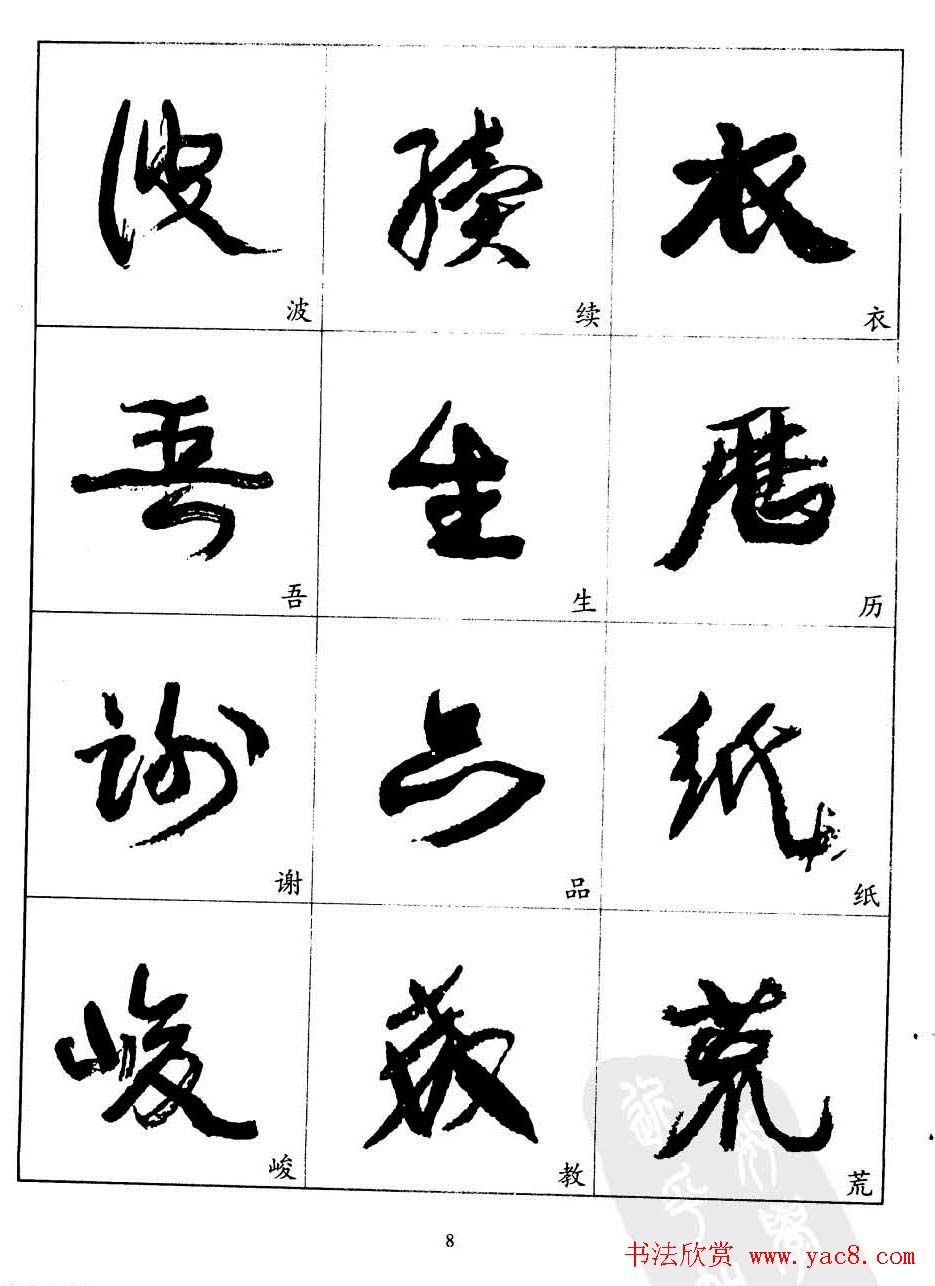 波 续 衣
吾 生 历
谢 品 纸
峻 教 荒
8
书法欣赏 www.yac8.com